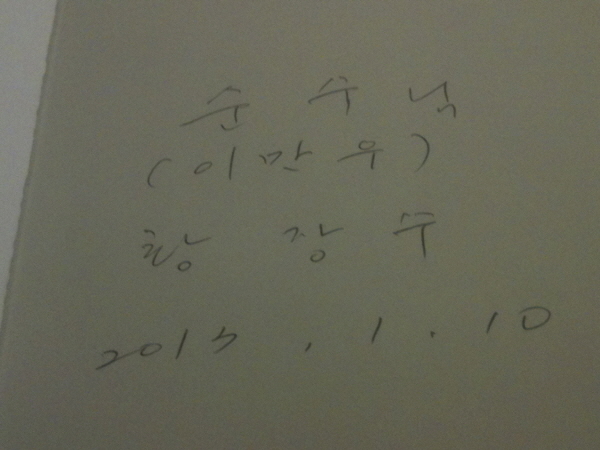 순수님
(이만우)
황장수
2015.1.10